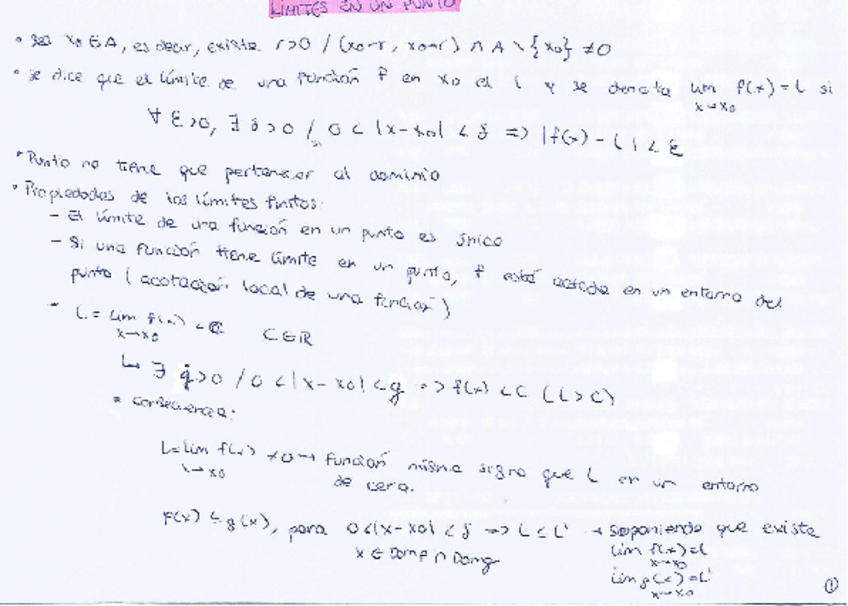 LÍMITES EN UN PUNTO
• sea x₀ ∈ A, es decir, existe r>0 / (x₀-r, x₀+r) ∩ A \ {x₀} ≠ 0
• se dice que el límite de una función f en x₀ el l y se denota lim f(x) = L si
x→x₀
∀ ε>0, ∃ δ>0 / 0 < |x-x₀| < δ => |f(x) - L| < ε
• Punto no tiene que pertenecer al dominio
• Propiedades de los límites finitos:
- El límite de una función en un punto es único
- Si una función tiene límite en un punto, f está acotada en un entorno del
punto (acotación local de una función)
- L = lim f(x) < C C ∈ ℝ
x→x₀
↳ ∃ g>0 / 0 < |x-x₀| < g => f(x) < C (L > C)
• consecuencia:
L = lim f(x) ≠ 0 → función misma signo que L en un entorno
x→x₀
de cera.
f(x) ≤ g(x), para 0<|x-x₀| < δ => L ≤ L' → Suponiendo que existe
x ∈ Domf ∩ Domg
lim f(x)=L
x→x₀
lim g(x)=L'
x→x₀
①